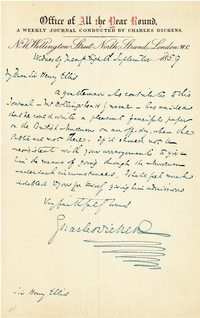 Office of All the Year Round,
A WEEKLY JOURNAL CONDUCTED BY CHARLES DICKENS.
No. 11, Wellington Street North, Strand, London, W.C.
Wednesday Twenty Eighth September 1859
My Dear Sir Henry Ellis
A gentleman who contributes to this
Journal – Mr Hollingshead by name – has an idea
that he could write a pleasant fanciful paper
on the British Museum on an off-day, when the
Public are not there. If it should not be
inconsistent with your arrangements to give
him the means of going through the Museum
under such circumstances, I shall feel much
indebted to you for kindly giving him admission
Very faithfully Yours
Charles Dickens
Sir Henry Ellis